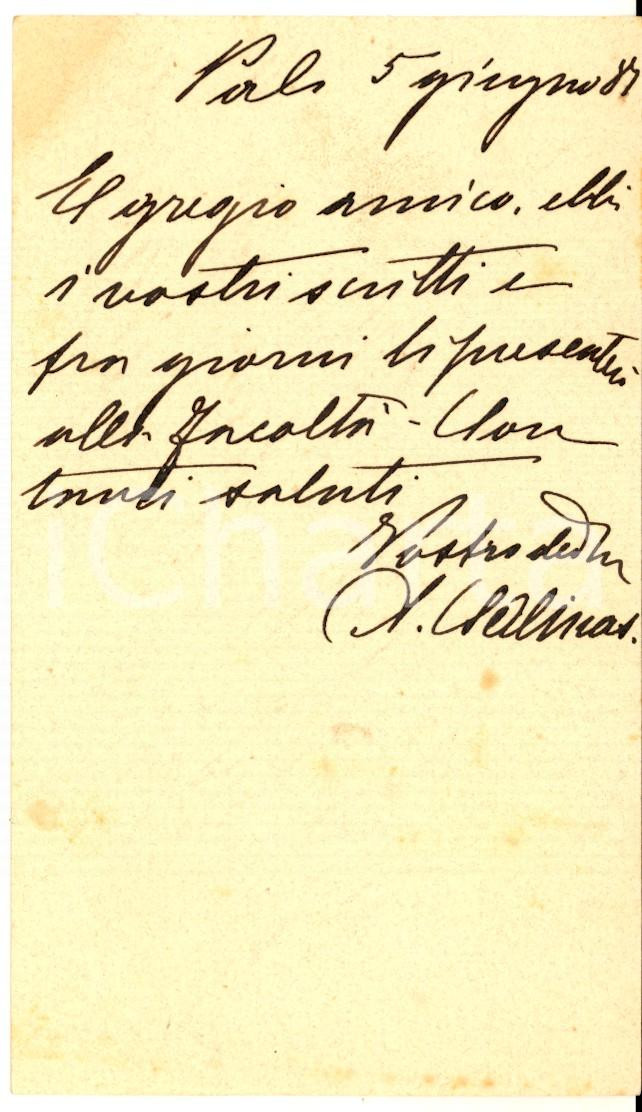 Palo 5 giugno 87
Egregio amico. ebbi
i vostri scritti e
fra giorni li presenterò
alla Facoltà - Con
tanti saluti
Vostro devmo
A. Salinas.
iCharta